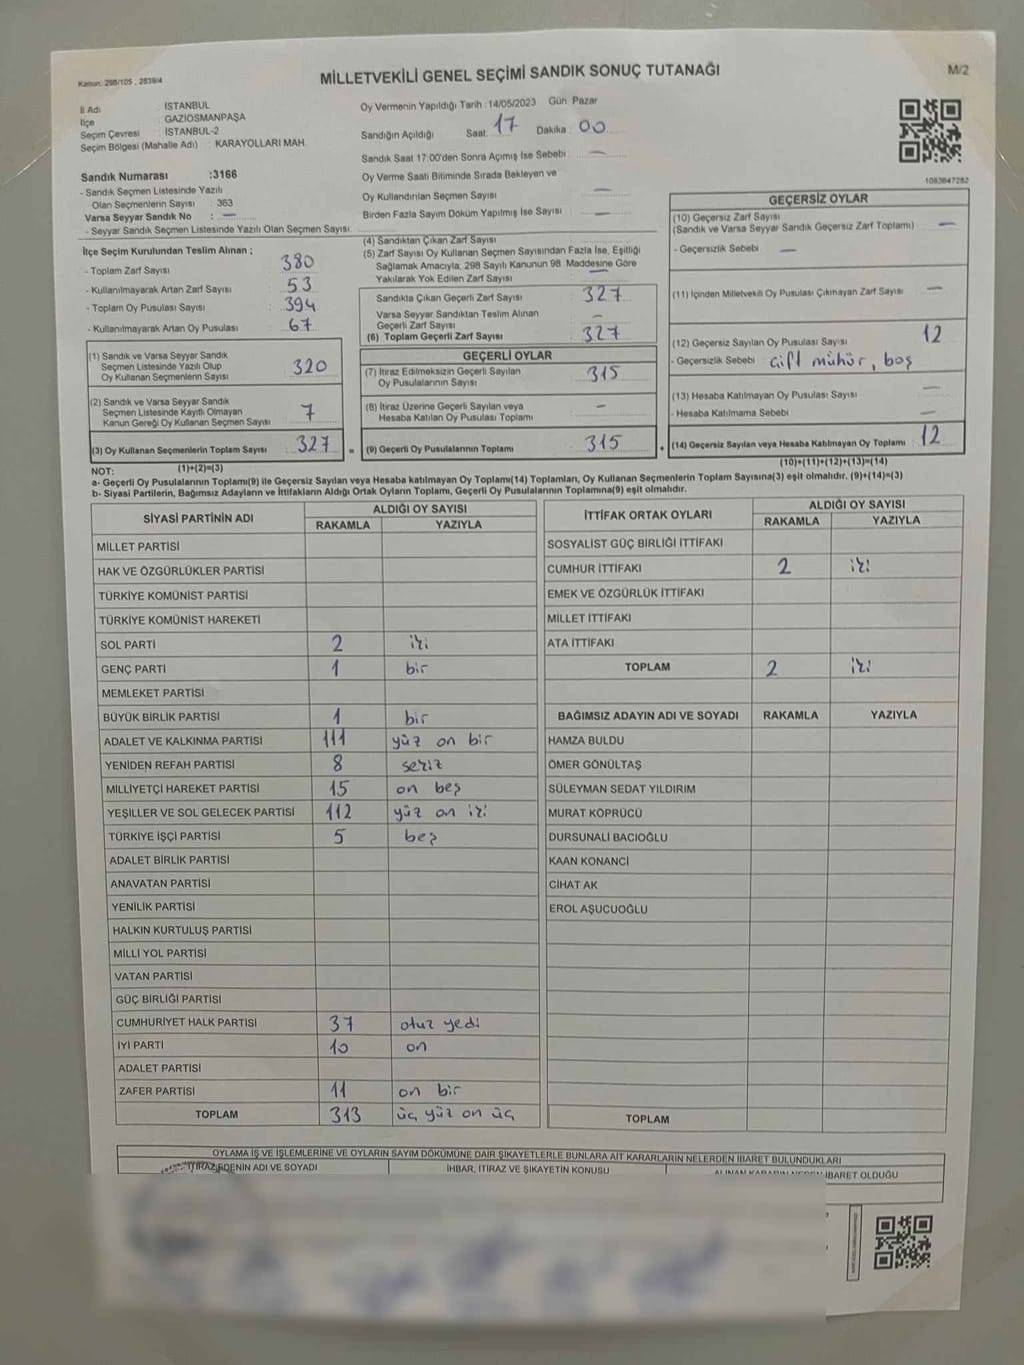 Kanun: 298/105 , 2839/4
MİLLETVEKİLİ GENEL SEÇİMİ SANDIK SONUÇ TUTANAĞI
M/2
İl Adı : İSTANBUL
İlçe : GAZİOSMANPAŞA
Seçim Çevresi : İSTANBUL-2
Seçim Bölgesi (Mahalle Adı) : KARAYOLLARI MAH.
Sandık Numarası :3166
- Sandık Seçmen Listesinde Yazılı
Olan Seçmenlerin Sayısı : 363
Varsa Seyyar Sandık No : —
- Seyyar Sandık Seçmen Listesinde Yazılı Olan Seçmen Sayısı:
Oy Vermenin Yapıldığı Tarih :14/05/2023 Gün: Pazar
Sandığın Açıldığı Saat: 17 Dakika : 00
Sandık Saat 17:00'den Sonra Açılmış İse Sebebi : —
Oy Verme Saati Bitiminde Sırada Bekleyen ve
Oy Kullandırılan Seçmen Sayısı : —
Birden Fazla Sayım Döküm Yapılmış İse Sayısı : —
1083847282
İlçe Seçim Kurulundan Teslim Alınan ;
- Toplam Zarf Sayısı : 380
- Kullanılmayarak Artan Zarf Sayısı : 53
- Toplam Oy Pusulası Sayısı : 394
- Kullanılmayarak Artan Oy Pusulası : 67
(1) Sandık ve Varsa Seyyar Sandık
Seçmen Listesinde Yazılı Olup
Oy Kullanan Seçmenlerin Sayısı : 320
(2) Sandık ve Varsa Seyyar Sandık
Seçmen Listesinde Kayıtlı Olmayan
Kanun Gereği Oy Kullanan Seçmen Sayısı : 7
(3) Oy Kullanan Seçmenlerin Toplam Sayısı : 327
(1)+(2)=(3)
(4) Sandıktan Çıkan Zarf Sayısı :
(5) Zarf Sayısı Oy Kullanan Seçmen Sayısından Fazla İse, Eşitliği
Sağlamak Amacıyla; 298 Sayılı Kanunun 98. Maddesine Göre
Yakılarak Yok Edilen Zarf Sayısı : —
Sandıkta Çıkan Geçerli Zarf Sayısı : 327
Varsa Seyyar Sandıktan Teslim Alınan
Geçerli Zarf Sayısı : —
(6) Toplam Geçerli Zarf Sayısı : 327
GEÇERLİ OYLAR
(7) İtiraz Edilmeksizin Geçerli Sayılan
Oy Pusulalarının Sayısı : 315
(8) İtiraz Üzerine Geçerli Sayılan veya
Hesaba Katılan Oy Pusulası Toplamı : —
= (9) Geçerli Oy Pusulalarının Toplamı : 315 +
GEÇERSİZ OYLAR
(10) Geçersiz Zarf Sayısı
(Sandık ve Varsa Seyyar Sandık Geçersiz Zarf Toplamı) : —
- Geçersizlik Sebebi : —
(11) İçinden Milletvekili Oy Pusulası Çıkmayan Zarf Sayısı : —
(12) Geçersiz Sayılan Oy Pusulası Sayısı : 12
- Geçersizlik Sebebi : çift mühür, boş
(13) Hesaba Katılmayan Oy Pusulası Sayısı : —
- Hesaba Katılmama Sebebi : —
(14) Geçersiz Sayılan veya Hesaba Katılmayan Oy Toplamı : 12
(10)+(11)+(12)+(13)=(14)
NOT:
a- Geçerli Oy Pusulalarının Toplamı(9) ile Geçersiz Sayılan veya Hesaba katılmayan Oy Toplamı(14) Toplamları, Oy Kullanan Seçmenlerin Toplam Sayısına(3) eşit olmalıdır. (9)+(14)=(3)
b- Siyasi Partilerin, Bağımsız Adayların ve İttifakların Aldığı Ortak Oyların Toplamı, Geçerli Oy Pusulalarının Toplamına(9) eşit olmalıdır.
SİYASİ PARTİNİN ADI ALDIĞI OY SAYISI
RAKAMLA YAZIYLA
MİLLET PARTİSİ
HAK VE ÖZGÜRLÜKLER PARTİSİ
TÜRKİYE KOMÜNİST PARTİSİ
TÜRKİYE KOMÜNİST HAREKETİ
SOL PARTİ 2 iki
GENÇ PARTİ 1 bir
MEMLEKET PARTİSİ
BÜYÜK BİRLİK PARTİSİ 1 bir
ADALET VE KALKINMA PARTİSİ 111 yüz on bir
YENİDEN REFAH PARTİSİ 8 sekiz
MİLLİYETÇİ HAREKET PARTİSİ 15 on beş
YEŞİLLER VE SOL GELECEK PARTİSİ 112 yüz on iki
TÜRKİYE İŞÇİ PARTİSİ 5 beş
ADALET BİRLİK PARTİSİ
ANAVATAN PARTİSİ
YENİLİK PARTİSİ
HALKIN KURTULUŞ PARTİSİ
MİLLİ YOL PARTİSİ
VATAN PARTİSİ
GÜÇ BİRLİĞİ PARTİSİ
CUMHURİYET HALK PARTİSİ 37 otuz yedi
İYİ PARTİ 10 on
ADALET PARTİSİ
ZAFER PARTİSİ 11 on bir
TOPLAM 313 üç yüz on üç
İTTİFAK ORTAK OYLARI ALDIĞI OY SAYISI
RAKAMLA YAZIYLA
SOSYALİST GÜÇ BİRLİĞİ İTTİFAKI
CUMHUR İTTİFAKI 2 iki
EMEK VE ÖZGÜRLÜK İTTİFAKI
MİLLET İTTİFAKI
ATA İTTİFAKI
TOPLAM 2 iki
BAĞIMSIZ ADAYIN ADI VE SOYADI RAKAMLA YAZIYLA
HAMZA BULDU
ÖMER GÖNÜLTAŞ
SÜLEYMAN SEDAT YILDIRIM
MURAT KÖPRÜCÜ
DURSUNALİ BACIOĞLU
KAAN KONANCİ
CİHAT AK
EROL AŞUCUOĞLU
TOPLAM
OYLAMA İŞ VE İŞLEMLERİNE VE OYLARIN SAYIM DÖKÜMÜNE DAİR ŞİKAYETLERLE BUNLARA AİT KARARLARIN NELERDEN İBARET BULUNDUKLARI
İTİRAZ EDENİN ADI VE SOYADI İHBAR, İTİRAZ VE ŞİKAYETİN KONUSU ALINAN KARARIN NEDEN İBARET OLDUĞU